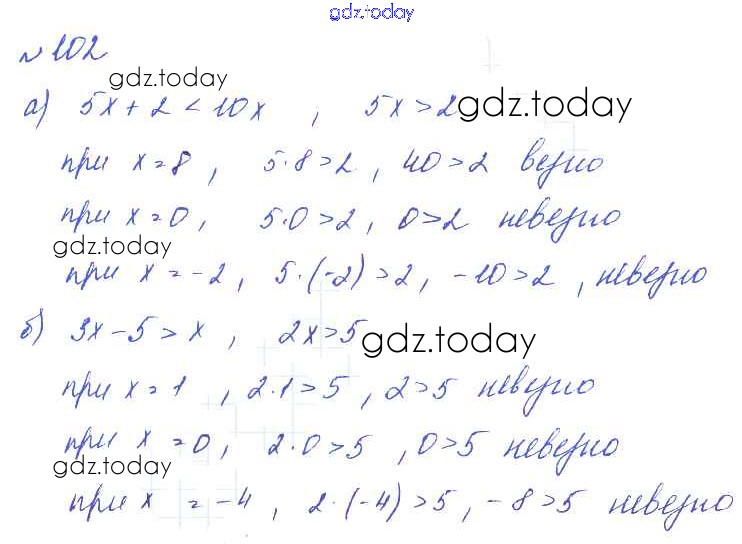 gdz.today
№ 102
gdz.today
а) 5x + 2 < 10x , 5x > 2 gdz.today
при x = 8 , 5·8 > 2 , 40 > 2 верно
при x = 0 , 5·0 > 2 , 0 > 2 неверно
gdz.today
при x = -2 , 5·(-2) > 2 , -10 > 2 , неверно
б) 3x - 5 > x , 2x > 5 gdz.today
при x = 1 , 2·1 > 5 , 2 > 5 неверно
при x = 0 , 2·0 > 5 , 0 > 5 неверно
gdz.today
при x = -4 , 2·(-4) > 5 , -8 > 5 неверно